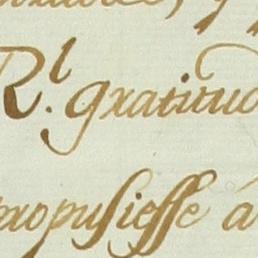 R.l gratitud
propusiesse á